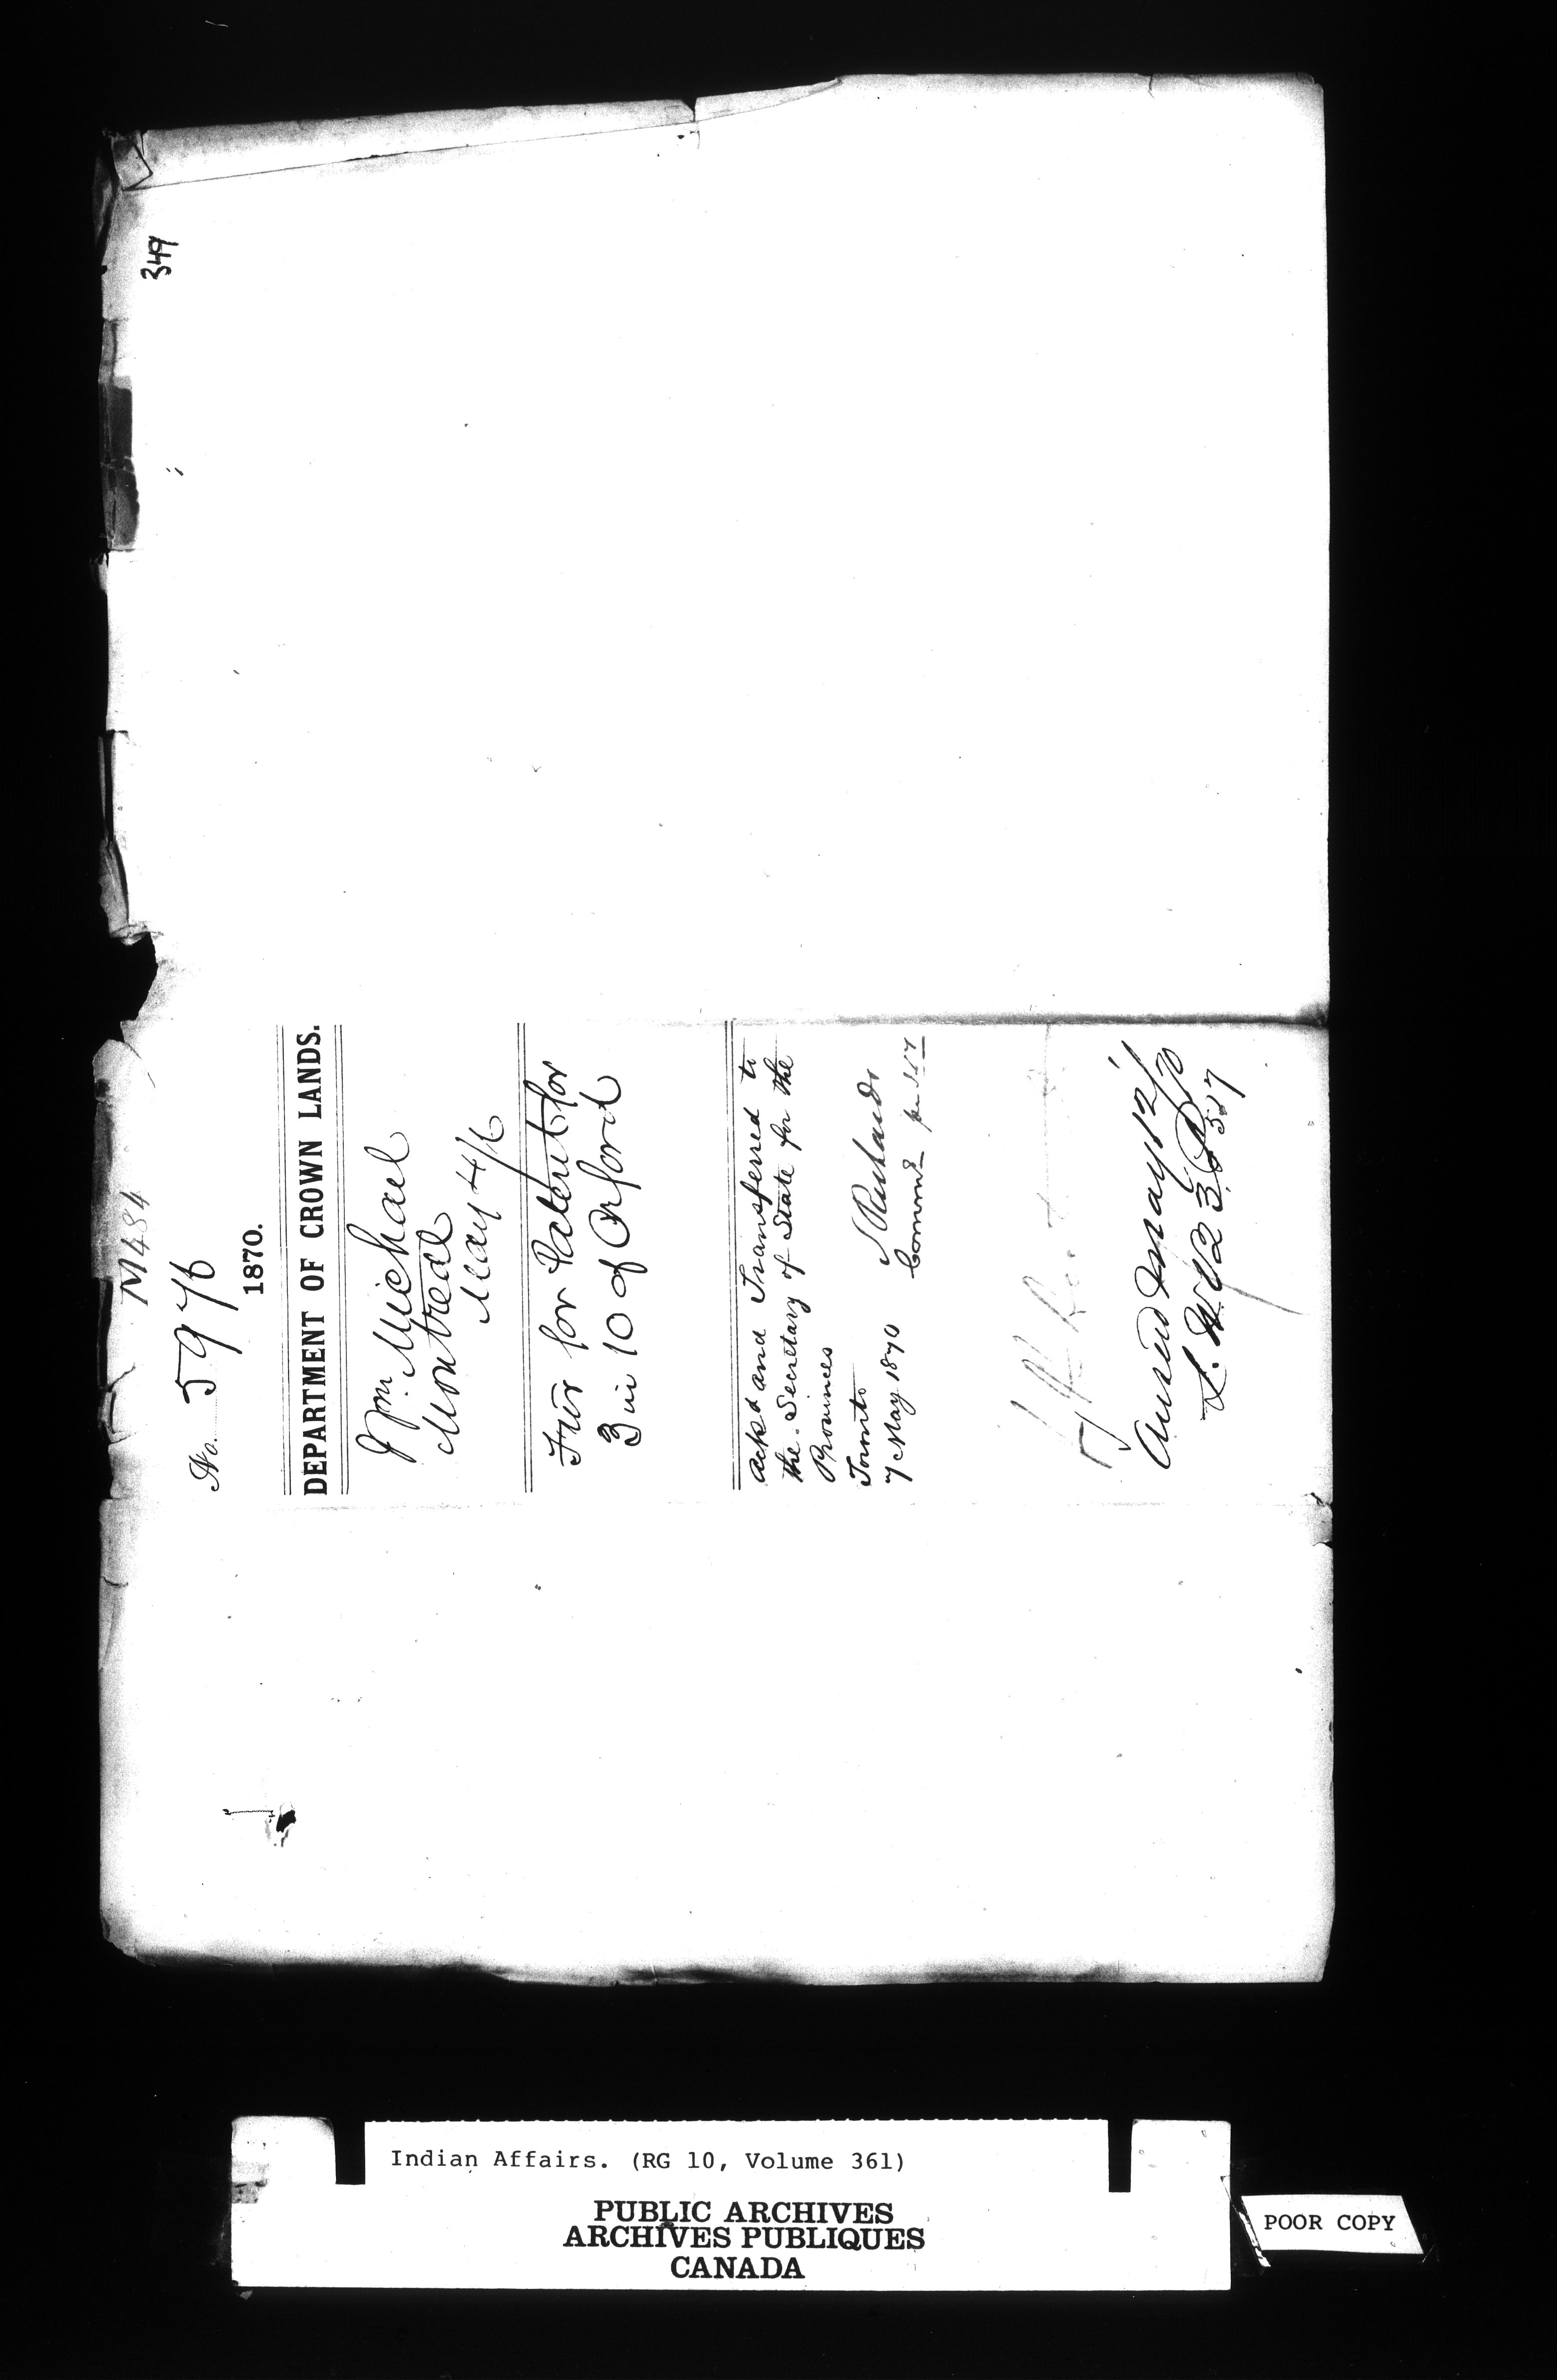 349
M484
No. 5976
1870.
DEPARTMENT OF CROWN LANDS.
Wm. Michael
Montreal
May 4/6
for Patent for
3 in 10 of Orford
Ackd and Transferred to
the Secretary of State for the
Provinces
Toronto
7 May 1870
S Richards
Comm
May 12/70
L. W. B. 3. P 537
Indian Affairs. (RG 10, Volume 361)
PUBLIC ARCHIVES
ARCHIVES PUBLIQUES
CANADA
POOR COPY